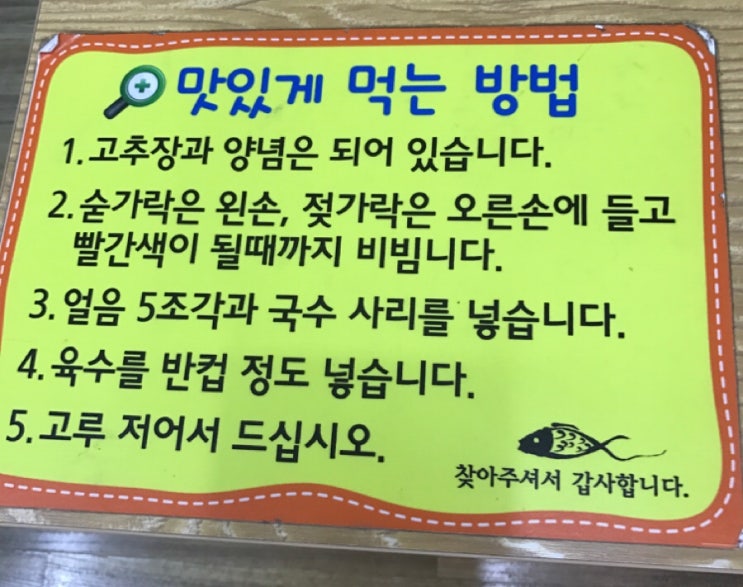 맛있게 먹는 방법
1. 고추장과 양념은 되어 있습니다.
2. 숟가락은 왼손, 젖가락은 오른손에 들고
빨간색이 될때까지 비빔니다.
3. 얼음 5조각과 국수 사리를 넣습니다.
4. 육수를 반컵 정도 넣습니다.
5. 고루 저어서 드십시오.
찾아주셔서 갑사합니다.